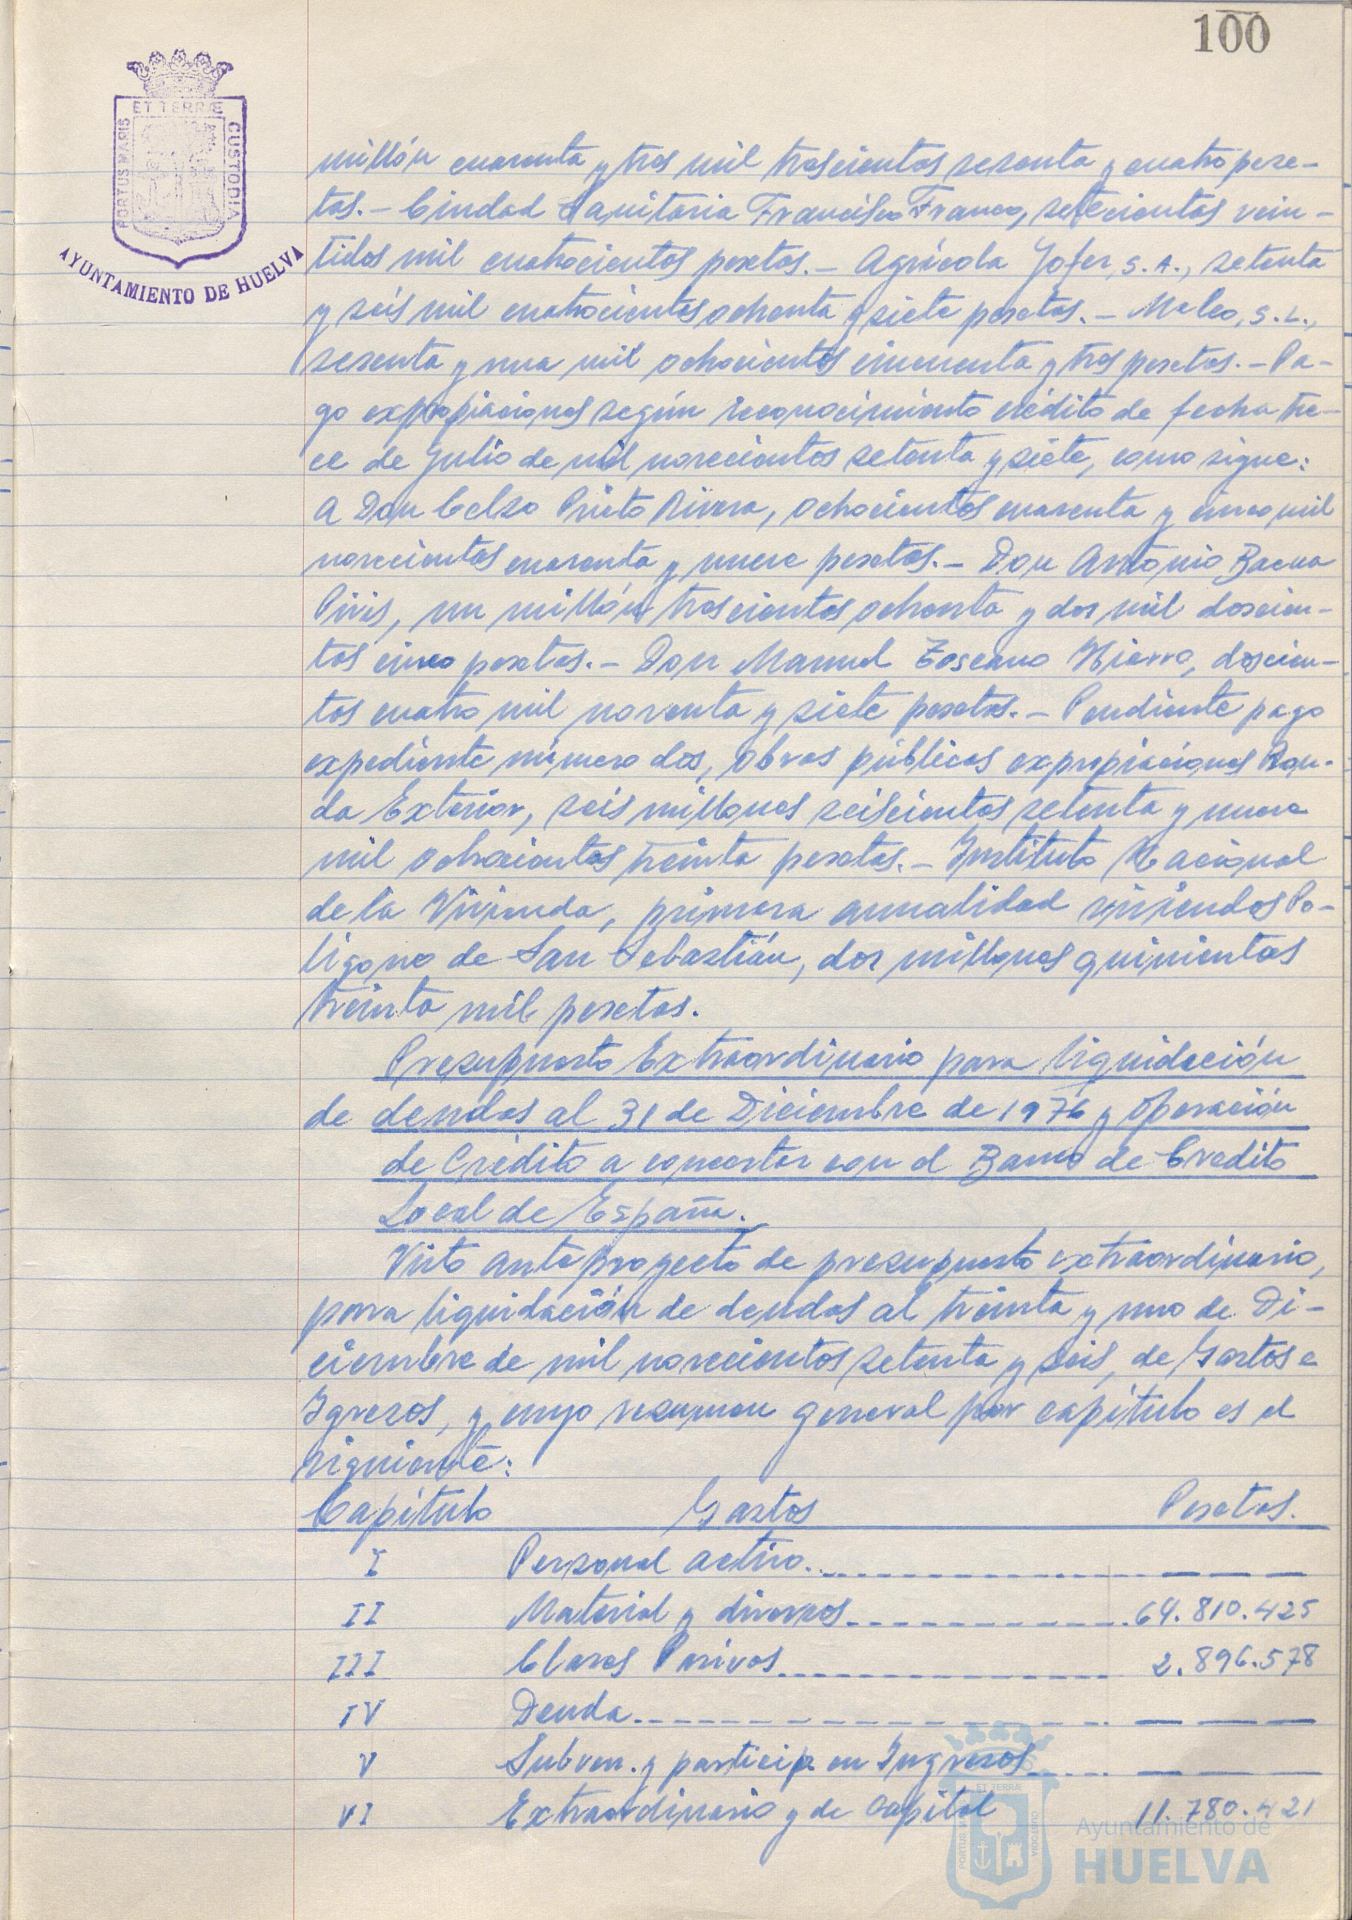 100
ET TERRÆ
PORTUS MARIS
CUSTODIA
AYUNTAMIENTO DE HUELVA
millón cuarenta y tres mil trescientos sesenta y cuatro pese-
tas.- Ciudad Sanitaria Francisco Franco, setecientos vein-
tidos mil cuatrocientos pesetas.- Agrícola Yofer, S.A., setenta
y seis mil cuatrocientos ochenta y siete pesetas.- Malco, S.L.,
sesenta y una mil ochocientos cincuenta y tres pesetas.- Pa-
go expropiaciones según reconocimiento crédito de fecha tre-
ce de Julio de mil novecientos setenta y siete, como sigue:
a Don Celso Prieto Rivera, ochocientos cuarenta y cinco mil
novecientos cuarenta y nueve pesetas.- Don Antonio Baena
un millón trescientos ochenta y dos mil doscien-
tos cinco pesetas.- Don Manuel Toscano Hierro, doscien-
tos cuatro mil noventa y siete pesetas.- Pendiente pago
expediente número dos, obras públicas expropiaciones Ron-
da Exterior, seis millones seiscientos setenta y nueve
mil ochocientos treinta pesetas.- Instituto Nacional
de la Vivienda, primera anualidad viviendas Po-
lígono de San Sebastián, dos millones quinientos
treinta mil pesetas.
Presupuesto Extraordinario para liquidación
de deudas al 31 de Diciembre de 1976 y operación
de Crédito a concertar con el Banco de Credito
Local de España.
Visto anteproyecto de presupuesto extraordinario,
para liquidación de deudas al treinta y uno de Di-
ciembre de mil novecientos setenta y seis, de Gastos e
Igresos, y cuyo resumen general por capítulo es el
siguiente:
Capítulo Gastos Pesetas.
I Personal activo. — — —
II Material y diversos 64.810.425
III Clases Pasivas 2.896.578
IV Deuda — — —
V Subven. y particip en Ingresos — — —
VI Extraordinario y de Capital 11.780.421
Ayuntamiento de
HUELVA